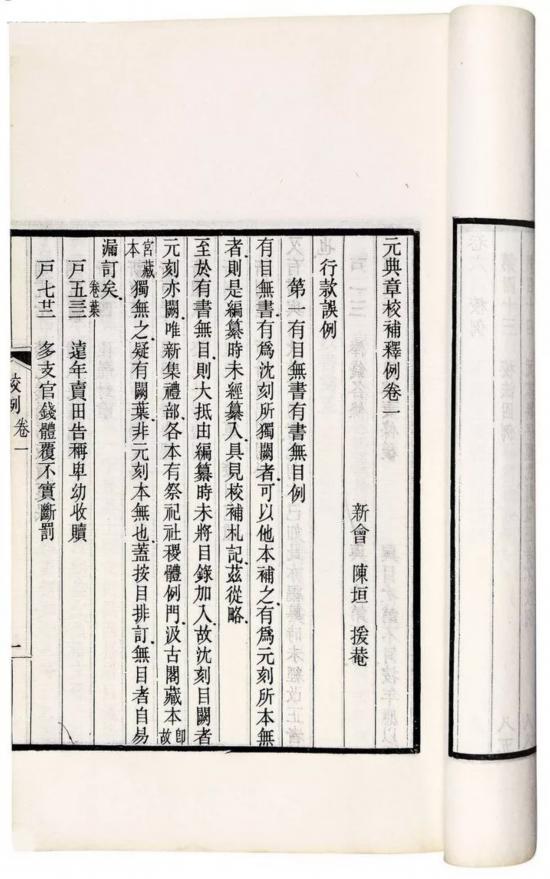 元典章校補釋例卷一
新會 陳垣 援菴
行款誤例
第一有目無書有書無目例
有目無書有爲沈刻所獨闕者可以他本補之有爲元刻所本無
者則是編纂時未經纂入具見校補札記茲從略
至於有書無目則大抵由編纂時未將目錄加入故沈刻目闕者
元刻亦闕唯新集禮部各本有祭祀社稷體例門汲古閣藏本即故
宮藏本獨無之疑有闕葉非元刻本無也蓋按目排訂無目者自易
漏訂矣
卷葉
戶五 遠年賣田告稱卑幼收贖
戶七 多支官錢體覆不實斷罰
校例 卷一
一